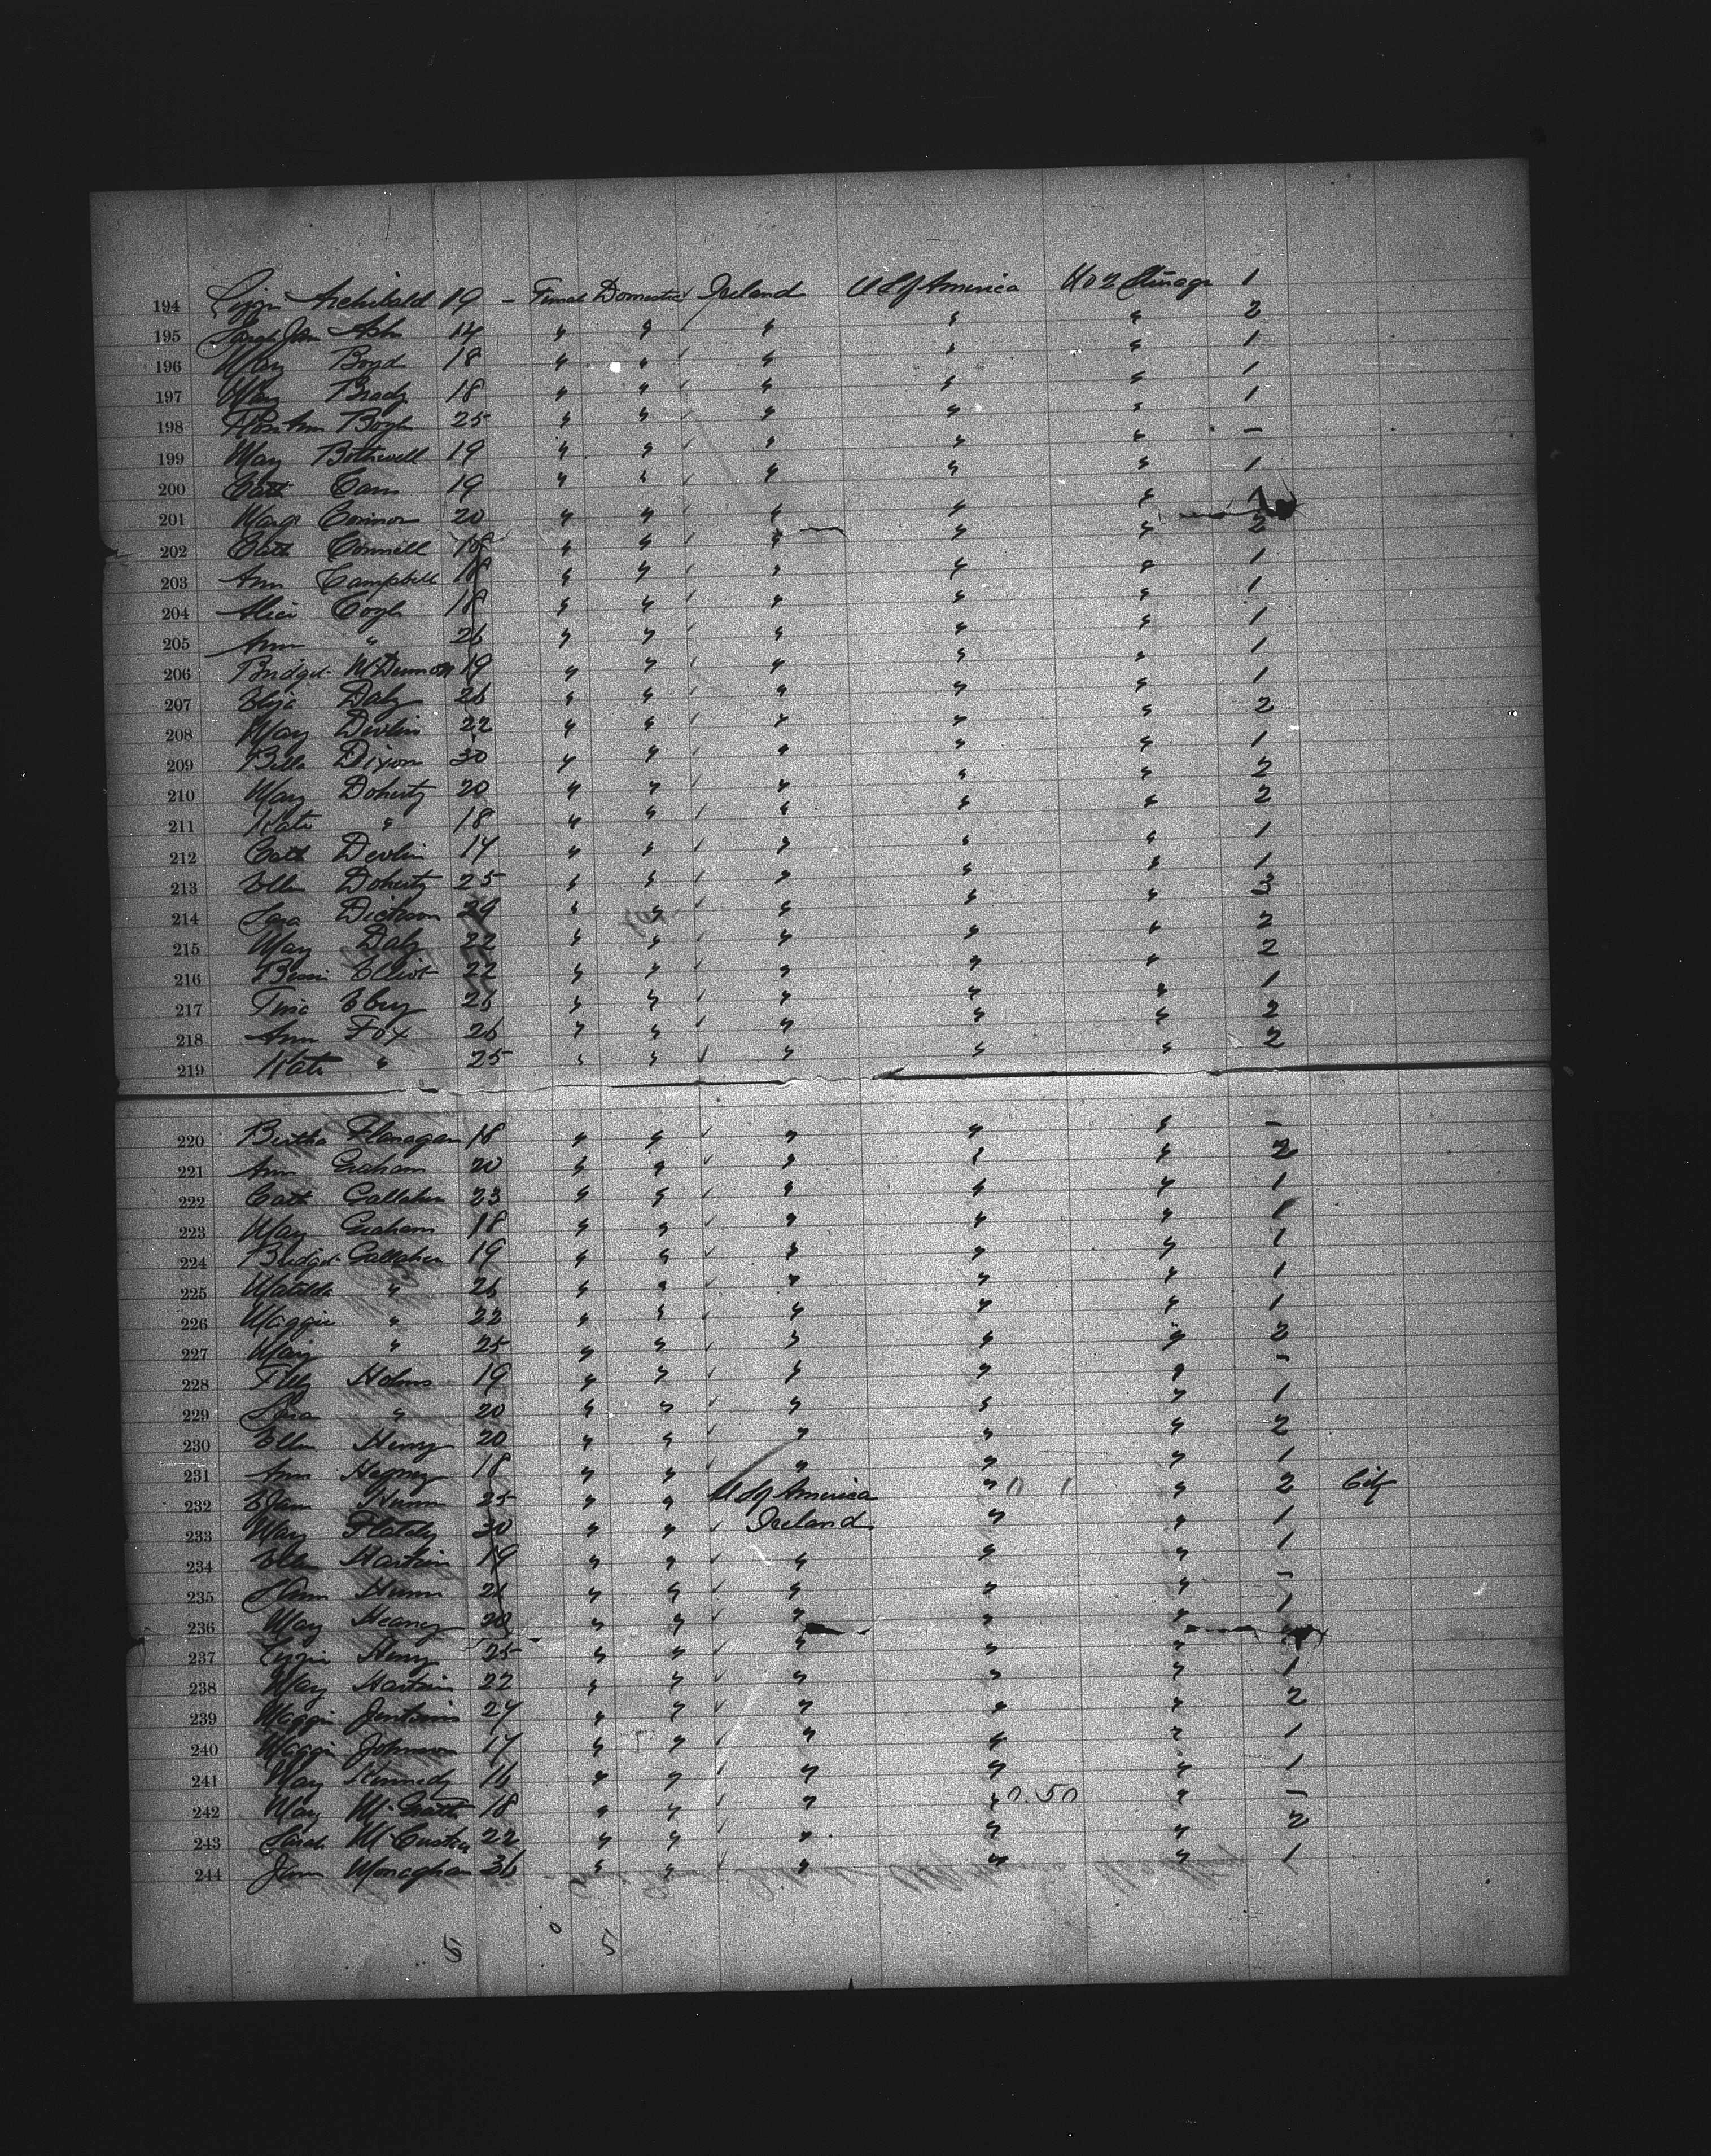 194 Lizzie Archibald 19 - Female Domestic ✓ Ireland U S of America No 2 Steerage 1
195 Sarah Jane Ash 14 " " ✓ " " " 2
196 Mary Boyd 18 " " ✓ " " " 1
197 Mary Brady 18 " " ✓ " " " 1
198 Boyle 25 " " ✓ " " " 1
199 Mary Bothwell 19 " " ✓ " " " -
200 Cath 19 " " ✓ " " " 1
201 Margt Connor 20 " " ✓ " " " 1
202 Cath Connell 18 " " ✓ " " " 2
203 Ann Campbell 18 " " ✓ " " " 1
204 Alice Coyle 18 " " ✓ " " " 1
205 Ann " 26 " " ✓ " " " 1
206 Bridget 19 " " ✓ " " " 1
207 Eliza Daly 26 " " ✓ " " " 1
208 Mary Devlin 22 " " ✓ " " " 2
209 Bella Dixon 30 " " ✓ " " " 1
210 Mary Doherty 20 " " ✓ " " " 2
211 Kate " 18 " " ✓ " " " 2
212 Cath Devlin 17 " " ✓ " " " 1
213 Ellen Doherty 25 " " ✓ " " " 1
214 Sara Dickson 29 " " ✓ " " " 3
215 Mary Daly 22 " " ✓ " " " 2
216 Elliot 22 " " ✓ " " " 2
217 " " ✓ " " " 1
218 Ann Fox 26 " " ✓ " " " 2
219 Kate " 25 " " ✓ " " " 2
220 Bertha Flanagan 18 " " ✓ " " " -
221 Ann Graham 20 " " ✓ " " " 2
222 Cath Gallaher 23 " " ✓ " " " 1
223 Mary Graham 18 " " ✓ " " " 1
224 Bridget Gallaher 19 " " ✓ " " " 1
225 Matilda " 26 " " ✓ " " " 1
226 Maggie " 22 " " ✓ " " " 1
227 Mary " 25 " " ✓ " " " 2
228 Tilly Holms 19 " " ✓ " " " -
229 Sara " 20 " " ✓ " " " 1
230 Ellen Henry 20 " " ✓ " " " 2
231 Ann 18 " " ✓ " " " 1
232 25 " " U S of America " 0 1 " 2 City
233 Mary 30 " " ✓ Ireland " " 1
234 Ellen 19 " " ✓ " " " 1
235 " " ✓ " " " -
236 Mary Heaney 20 " " ✓ " " " 1
237 Lizzie Henry 25 " " ✓ " " "
238 Mary 22 " " ✓ " " " 1
239 Maggie Jenkins 24 " " ✓ " " " 2
240 Maggie Johnson 17 " " ✓ " " " 1
241 Mary Kennedy 16 " " ✓ " " " 1
242 Mary McGrath 18 " " ✓ " " 0.50 " -
243 Sarah 22 " " ✓ " " " 2
244 Jane Monaghan 36 " " ✓ " " " 1
5 0 5